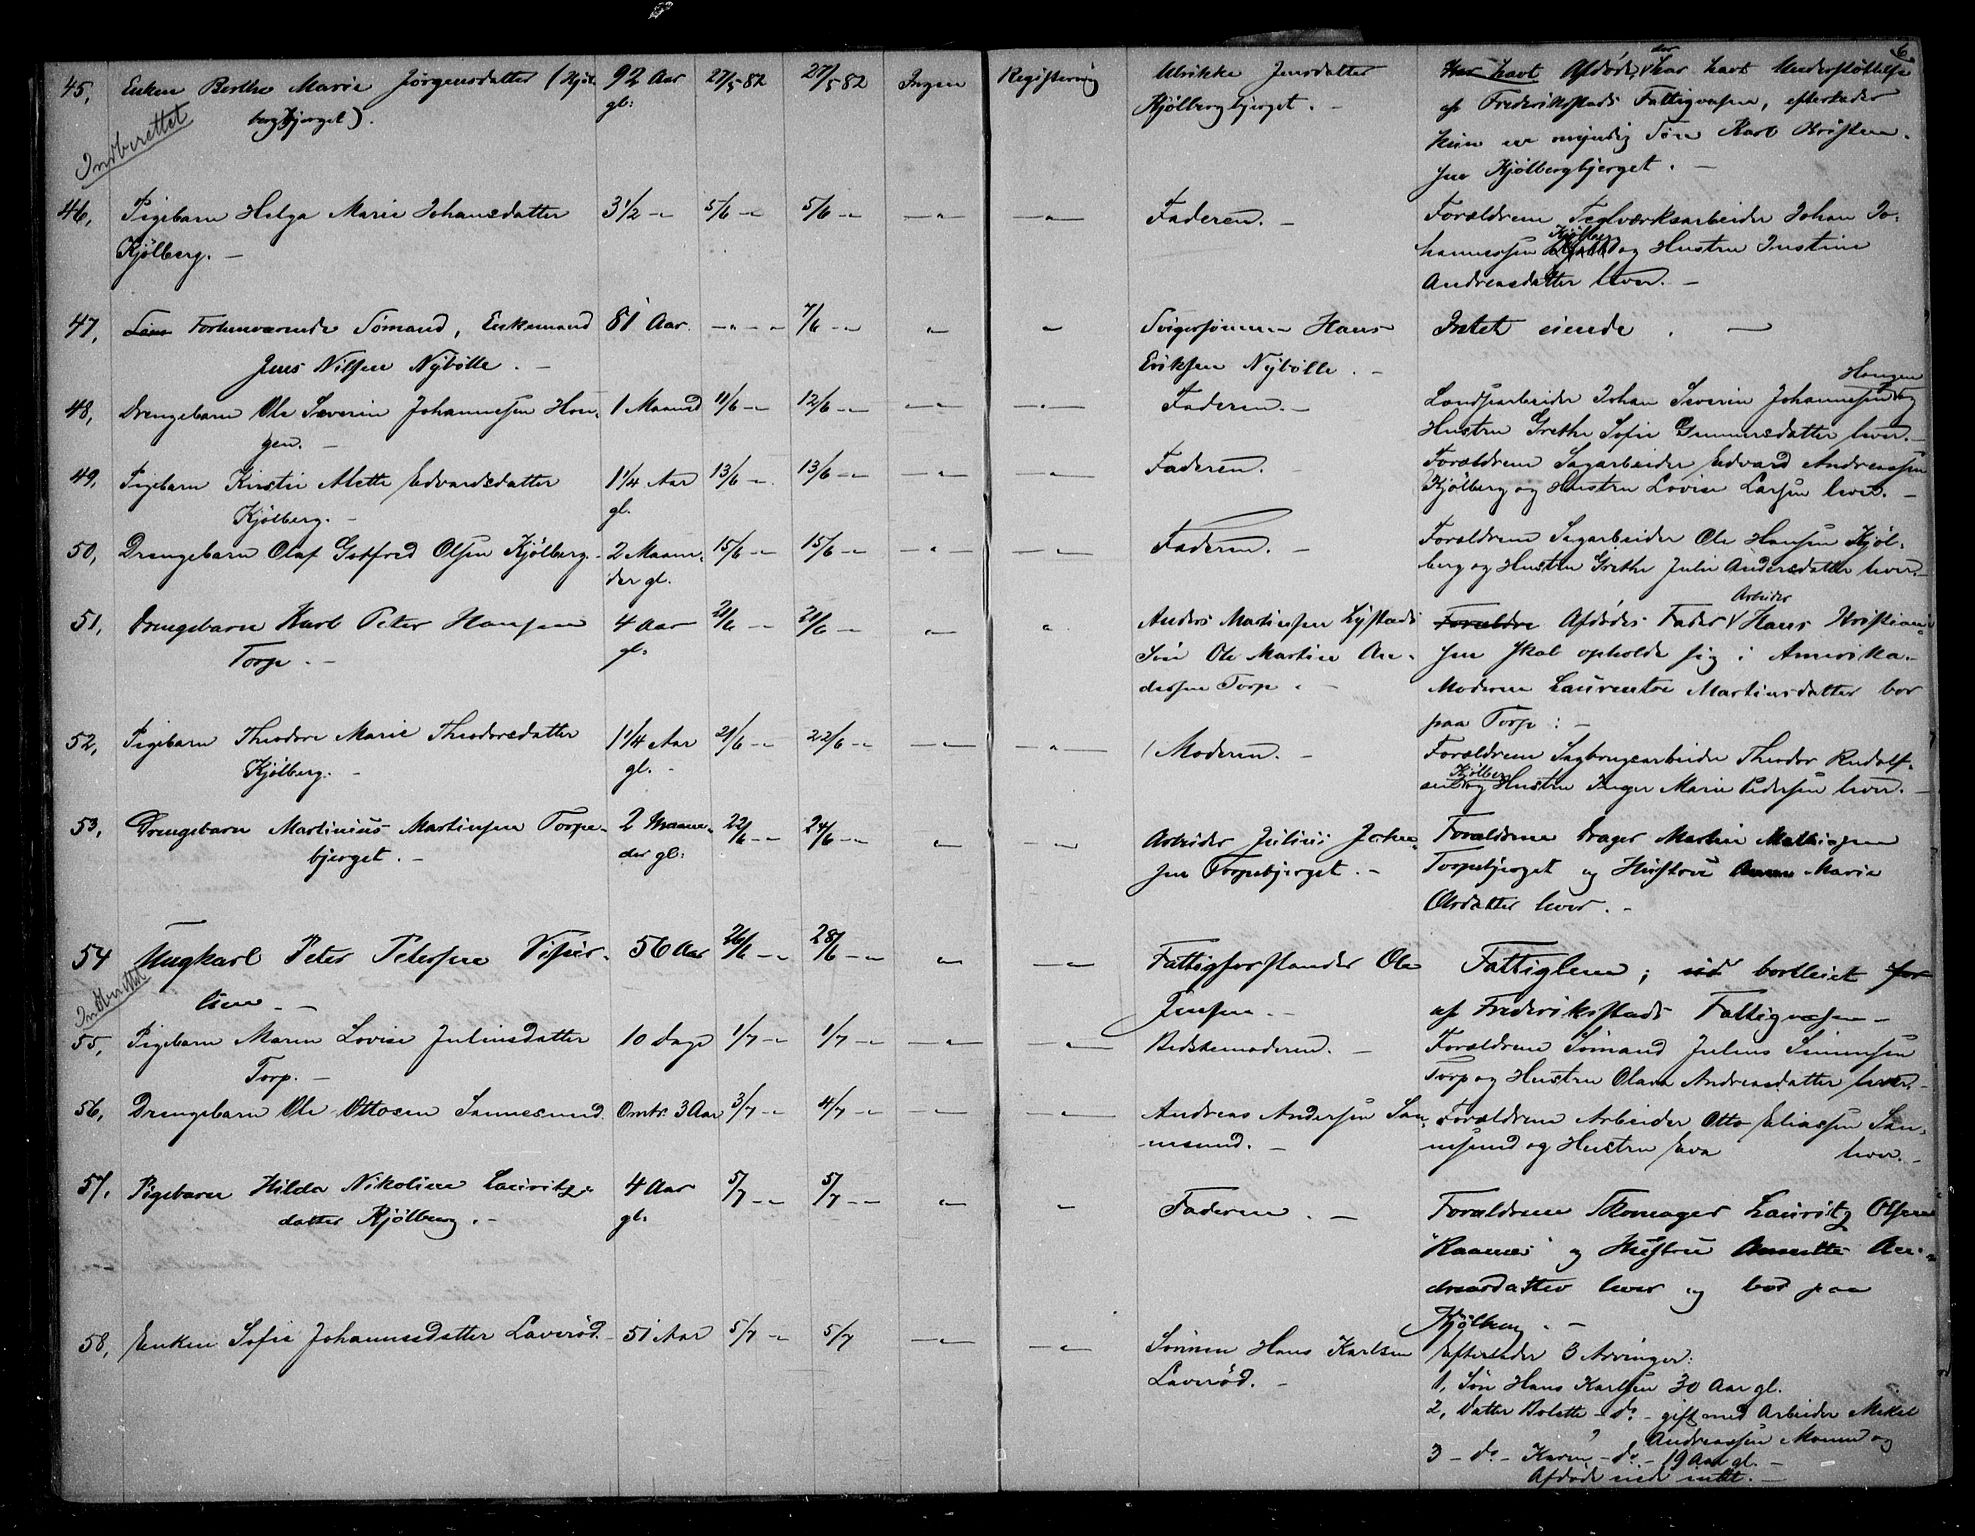 6.
45, Enken Berthe Marie Jörgensdatter (Kjöl- 92 Aar 27/5-82 27/5 82 Ingen Registrering Ulrikke Jensdatter Har havt Afdöde, der har havt Understöttelse
bergbjerget). gl: Kjölbergbjerget. - af Frederiksstads Fattigvæsen, efterlader
Indberettet kun en myndig Sön Karl Kristen-
sen Kjölbergbjerget. -
46, Pigebarn Helga Marie Johansdatter 3 1/2 -"- 5/6 -"- 5/6 -"- -"- -"- Faderen. - Forældrene Teglværksarbeider Johan Jo-
Kjölberg. - hannessen Kjölberg og Hustru Justine
Andreasdatter lever. -
47, Forhenværende Sömand, Enkemand 81 Aar. -"- - 7/6 -"- " " Svigersönnen Hans Intet eiende. -
Jens Nilsen Nybölle. - Eriksen Nybölle. -
48, Drengebarn Ole Severin Johannesen Hau- 1 Maaned 11/6 -"- 12/6 -"- -"- -"- Faderen. - Landsarbeider Johan Severin Johannesen Haugen og
gen. - Hustru Grethe Sofie Gunnersdatter lever. -
49, Pigebarn Kirstie Mette Edvardsdatter 1 1/4 Aar 13/6 -"- 13/6 -"- -"- -"- Faderen. - Forældrene Sagarbeider Edvard Andreassen
Kjölberg. - gl. Kjölberg og Hustru Lovise Larsen lever. -
50, Drengebarn Olaf Gotfred Olsen Kjölberg. - 2 Maane- 15/6 -"- 15/6 -"- -"- -"- Faderen. - Forældrene Sagarbeider Ole Hansen Kjöl-
der gl. berg og Hustru Grethe Julie Andersdatter lever. -
51, Drengebarn Karl Peter Hansen 4 Aar 21/6 -"- 21/6 -"- " " Anders Martinsen Lystads Forældre Afdödes Fader Arbeider Hans Kristian-
Torp. - gl: Sön Ole Martin An- sen skal opholde sig i Amerika.
dersen Torp. - Moderen Laurentze Martinsdatter bor
paa Torp: -
52, Pigebarn Theodore Marie Theodorsdatter 1 1/4 Aar 21/6 -"- 22/6 -"- -"- -"- Moderen. - Forældrene Sagbrugsarbeider Theodor Rudolf-
Kjölberg. - gl. - sen Kjölberg og Hustru Inger Marie Pedersen lever. -
53, Drengebarn Martinius Martinsen Torpe- 2 Maane- 22/6 -"- 24/6 -"- " -"- Arbeider Julius Forældrene Drager Martin Mathisen
bjerget. - der gl: sen Torpebjerget. - Torpebjerget og Hustru Anne Marie
Olsdatter lever. -
54 Ungkarl Peter Petersen Visser- 56 Aar 26/6 -"- 28/6 -"- " -"- Fattigforstander Ole Fattiglem; bortleiet for
lien - Jensen. - af Frederiksstads Fattigvæsen -
Indberettet
55, Pigebarn Maren Lovise Juliusdatter 10 Dage 1/7 -"- 1/7 -"- -"- -"- Bedstemoderen. - Forældrene Sömand Julius Simensen
Torp. - Torp og Hustru Olava Andreasdatter lever. -
56, Drengebarn Ole Ottosen Sannesund Omtr. 3 Aar 3/7 -"- 4/7 -"- -"- -"- Andreas Andersen San- Forældrene Arbeider Otto Eliassen San-
nesund. - nesund og Hustru Eva lever. -
57. Pigebarn Hilda Nikoline Lauritz- 4 Aar 5/7 -"- 5/7 -"- " " Faderen. - Forældrene Skomager Lauritz Olsen
datter Kjölberg. - gl: "Raanes" og Hustru Annette An-
dreasdatter lever og bor paa
Kjölberg. -
58, Enken Sofie Johannesdatter Laveröd. - 51 Aar 5/7 -"- 5/7 -"- -"- Sönnen Hans Karlsen Efterlader 3 Arvinger:
Laveröd. - 1, Sön Hans Karlsen 30 Aar gl.
2, Datter Bolette - do - gift med Arbeider Mikal
Andreassen Moum og
3 - do - Karen - do - 19 Aar gl. -
Afdöde eied intet. -